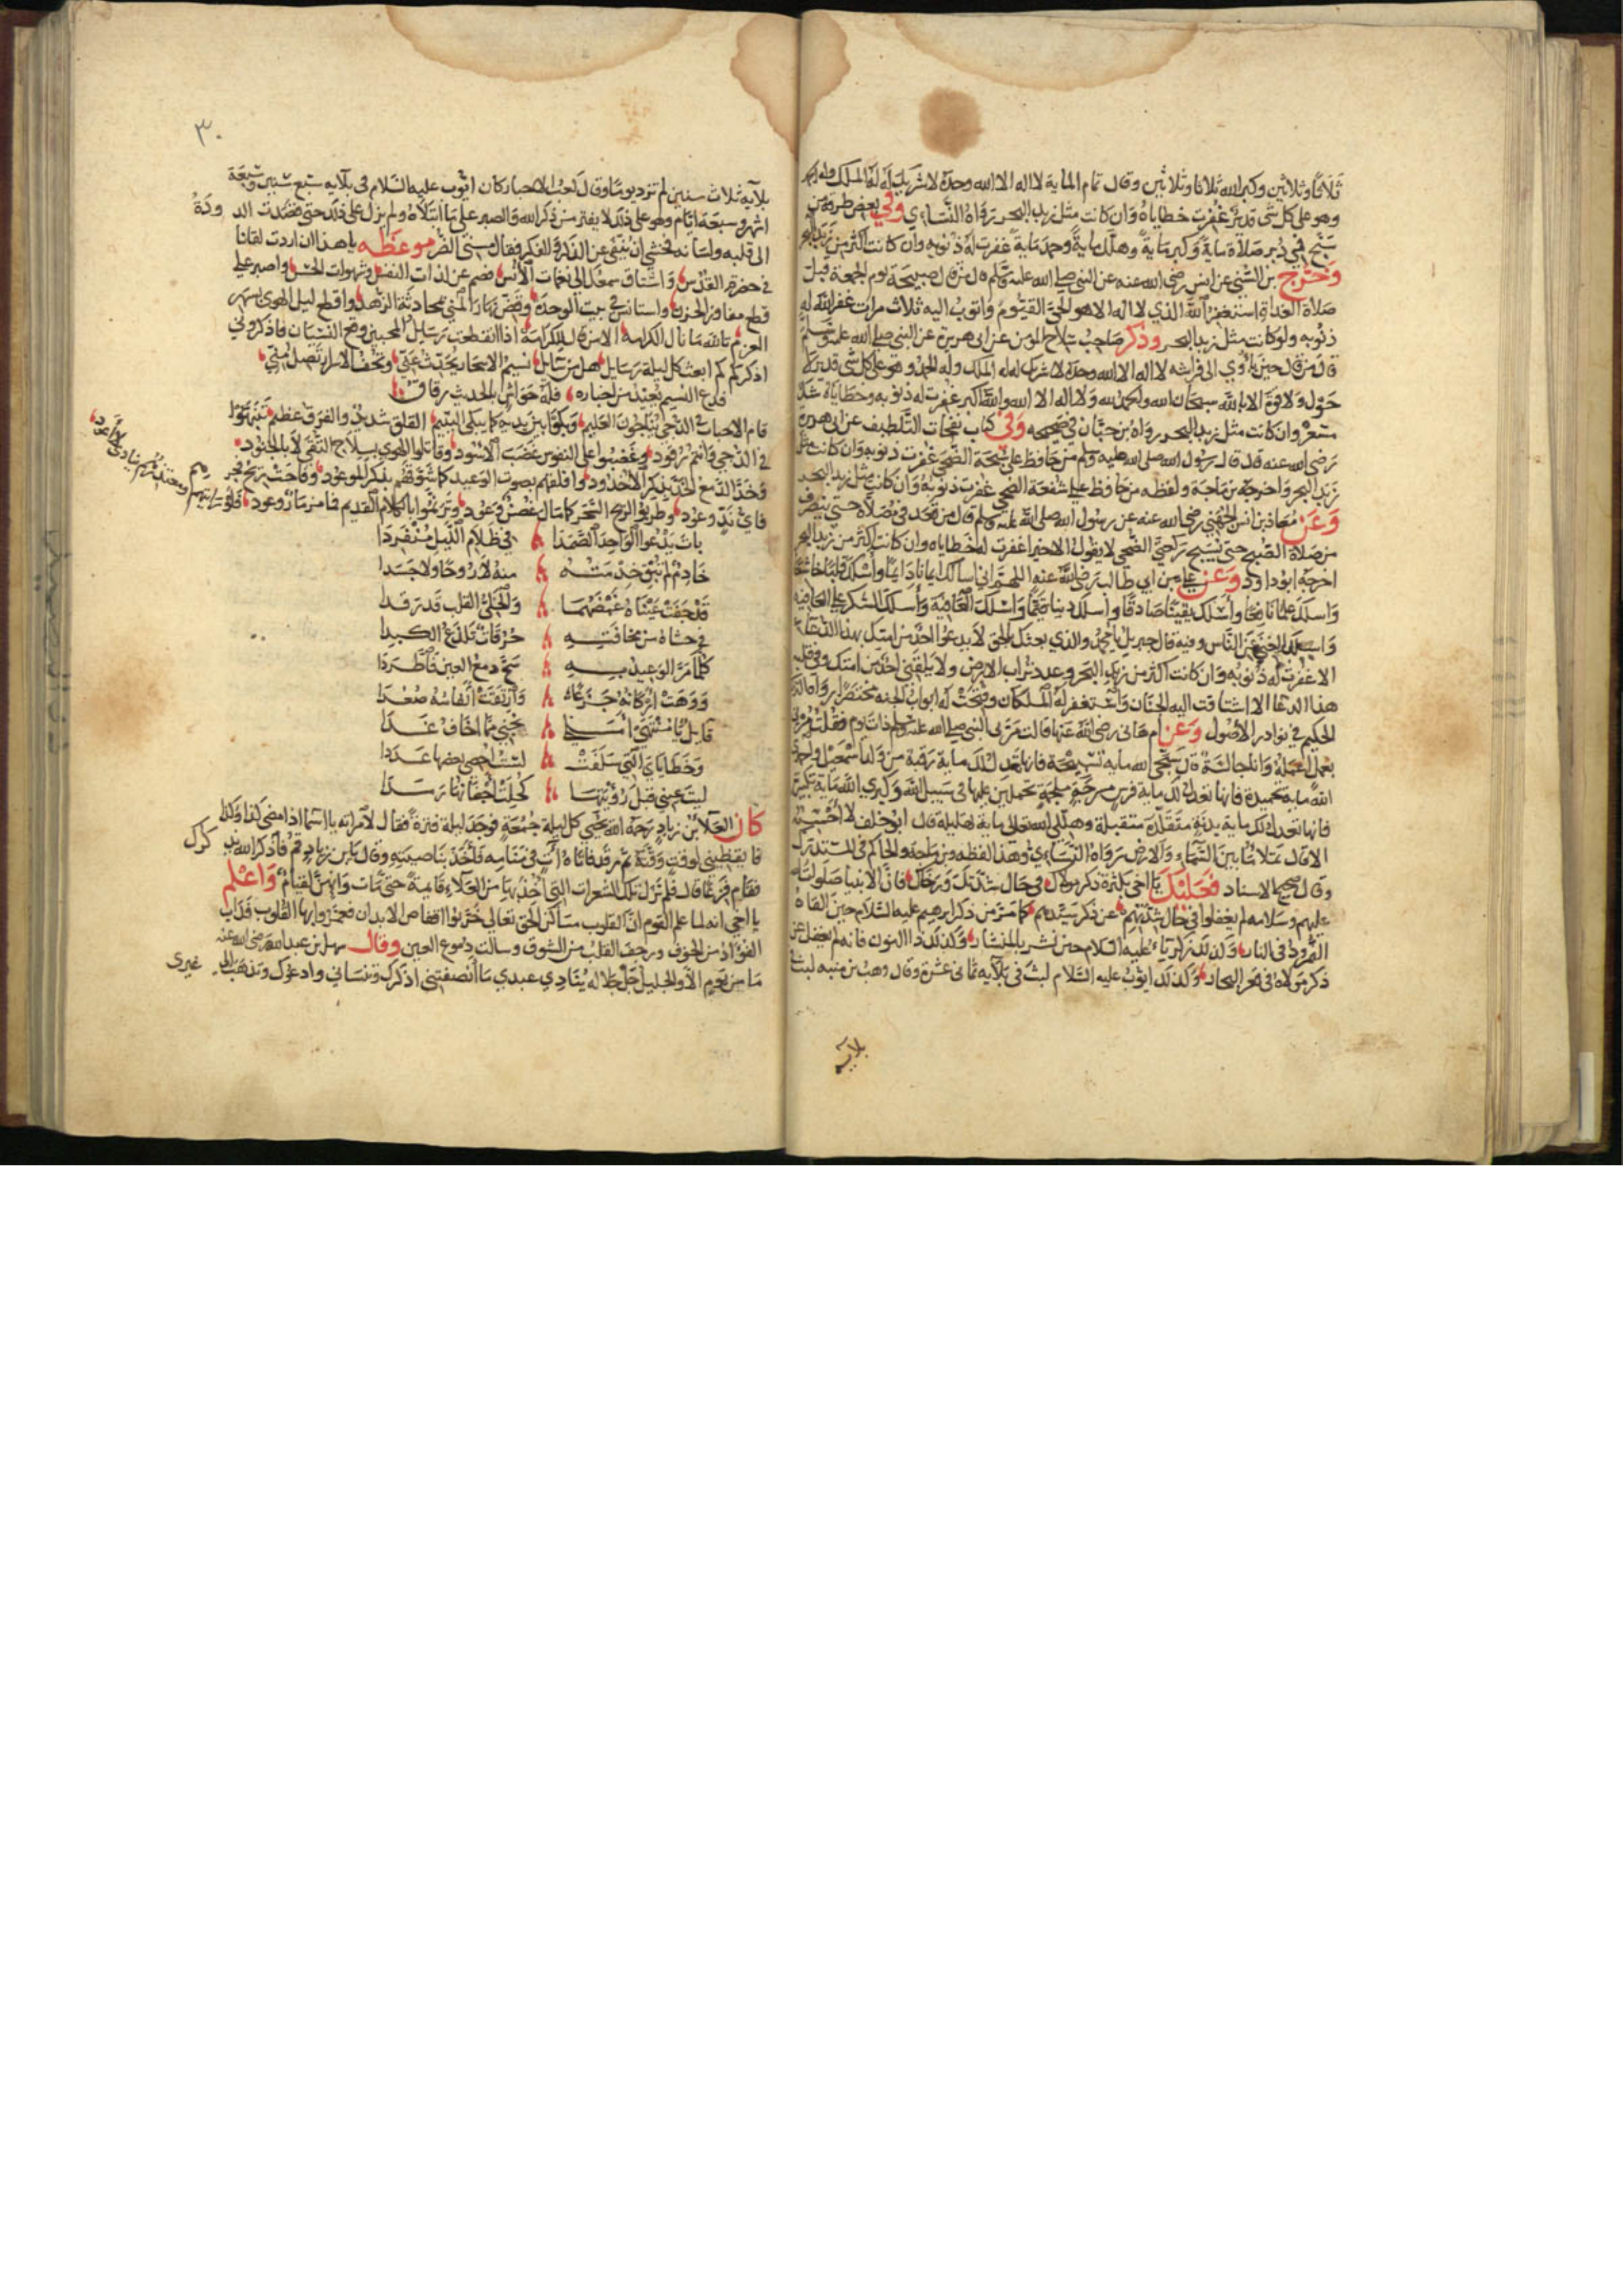 ثلاثا وثلاثين وكبر الله ثلاثا وثلاثين وقال تمام الماية لا اله الا الله وحده لا شريك له له الملك وله الحمد
وهو على كل شى قدير غفرت خطاياه وان كانت مثل زبد البحر رواه النساءي وفي بعض طرقه من
سبح في دبر صلاة ماية وكبر ماية وهلل ماية وحمد ماية غفرت له ذنوبه وان كانت اكثر من زبد البحر
وخرج بن السني عن انس رضى الله عنه عن النبي صلى الله عليه وسلم قال من قال صبيحة يوم الجمعة قبل
صلاة الغداة استغفر الله الذي لا اله الا هو الحي القيوم واتوب اليه ثلاث مرات غفر الله له
ذنوبه ولو كانت مثل زبد البحر وذكر صاحب سلاح المومن عن ابى هريرة عن النبي صلى الله عليه وسلم
قال من قال حين ياوي الى فراشه لا اله الا الله وحده لا شريك له له الملك وله الحمد وهو على كل شى قدير لا
حول ولا قوة الا بالله سبحان الله والحمد لله ولا اله الا الله والله اكبر غفرت له ذنوبه وخطاياه شك
مسعر وان كانت مثل زبد البحر رواه بن حبان في صحيحه وفي كتاب نفحات التلطيف عن ابى هريرة
رضى الله عنه قال قال رسول الله صلى الله عليه وسلم من حافظ على سبحة الضحى غفرت ذنوبه وان كانت مثل
زبد البحر واخرجه بن ماجة ولفظه من حافظ على شفعة الضحى غفرت ذنوبه وان كانت مثل زبد البحر
وعن معاذ بن انس الجهني رضى الله عنه عن رسول الله صلى الله عليه وسلم قال من قعد في مصلاه حتى ينصرف
من صلاة الصبح حتى يسبح ركعتي الضحى لا يقول الا خيرا غفرت له خطاياه وان كانت اكثر من زبد البحر
اخرجه ابو داود وعن علي بن ابي طالب رضى الله عنه اللهم اني اسالك ايمانا دايما واسلك قلبا خاشعا
واسلك علما نافعا واسلك يقينا صادقا واسلك دينا قيما واسلك العافية واسلك الشكر على العافيه
واسلك الغنى عن الناس وفيه قال جبريل يا محمد والذي بعثك بالحق لا يدعوا احد من امتك بهذا الدعاء
الا غفرت له ذنوبه وان كانت اكثر من زبد البحر وعدد تراب الارض ولا يلقى احد من امتك وفي قلبه
هذا الدعا الا اشتاقت اليه الجنان واستغفر له الملكان وفتحت له ابواب الجنه مختصرا رواه
الحكيم في نوادر الاصول وعن ام هانى رضى الله عنها قالت مر بى النبى صلى الله عليه وسلم ذات يوم فقلت مرني
بعمل اعمله وانا جالسة قال سبحي الله مايه تسبيحة فانها تعدل لك ماية رقبة من ولد اسمعيل واحمدي
الله ماية تحميدة فانها تعدل لك ماية فرس مسرجة ملجمة تحملين عليها في سبيل الله وكبري الله ماية تكبيرة
فانها تعدل لك ماية بدنة مقلدة متقبلة وهللي الله تعالى ماية تهليلة قال ابو خلف لا احسبه
الا قال تملا ما بين السماء والارض رواه النساءي وهذا لفظه وبن ماجة والحاكم في المستدرك
وقال صحيح الاسناد فعليك يا اخي بكثرة ذكر مولاك في حال شدتك ورخاك فان الانبيا صلوات الله
عليهم وسلامه لم يغفلوا في حال شدتهم عن ذكر سيدهم كما مر من ذكر ابرهيم عليه السلام حين القاه
النمرود في النار وكذلك زكرياء عليه السلام حين نشر بالمنشار وكذلك ذا النون فانه لم يغفل عن
ذكر مولاه في قعر البحار وكذلك ايوب عليه السلام لبث في بلايه ثمانى عشرة وقال وهب بن منبه لبث
بلايه
٣٠
بلايه ثلاث سنين لم تزد يوما وقال كعب الاحبار كان ايوب عليه السلام في بلايه سبع سنين وسبعة
اشهر وسبعة ايام وهو على ذلك لا يفتر من ذكر الله والصبر على ما ابتلاه ولم يزل على ذلك حتى قصدت الدودة
الى قلبه ولسانه فخشي ان يفتى عن الذكر والفكر فقال مسنى الضر موعظه يا هذا ان اردت لقانا
في حضرة القدس واشتاق سمعك الى نغمات الانس فصم عن لذات النفس وشهوات الحس واصبر على
قطع مفاوز الحزن واستانس في بيت الوحدة وقص نهار المنى بمحادثة الزهد واقطع ليل الهوى بسهر
العزم تالله ما نال الكرامة الا من قال للكرامة اذا انقطعت رسايل المحبين وصح النسيان فاذكروني
اذكركم كم ابعث كل ليلة رسايل هل من سايل نسيم الاسحار يحدث عني وتحف الاسرار تصل مني
فدع النسيم يعيد من اخباره فله حواشي بالحديث رقاق
قام الاحباب في الدجي يناجون العليم وبكوا بين يديه كما يبكى اليتيم القلق شديد والفرق عظيم تنبهوا
في الدجي وانتم رقود وغضبوا على النفوس غضب الاسود وقاتلوا الهوى بسلاح التقى لا بالجنود
وخد الدمع الخد بذكر الاخدود واقلقهم بصوت الوعيد كما شوقهم بذكر الموعود وفاحت ريح فجر
فاي ند وعود وطربوا لريح السحر كما مال غصن وعود وترنموا بالكلام القديم فما مزمار وعود
بات يدعوا الواحد الصمدا في ظلام الليل منفردا
خادم لم تبق خدمته منه لا روحا ولا جسدا
قد جفت عيناه غمضهما والخلى القلب قد رقدا
في حشاه من مخافته حرقات تلذع الكبدا
كلما مر الوعيد به سح دمع العين فاطردا
ووهت اركانه جزعا وارتقت انفاسه صعدا
قايل يا منتهى املى نجني مما اخاف غدا
وخطاياي التي سلفت لست احصى بعضها عددا
ليت عيني قبل رؤيتها كحلت اجفانها رمدا
كان العلا بن زياد رحمه الله يحيى كل ليلة جمعة فوجد ليلة فترة فقال لامراته يا اسما اذا مضى كذا وكذا
فايقظيني لوقت وقته ثم رقد فاتاه ات في منامه فاخذ بناصيته وقال يا بن زياد قم فاذكر الله يذكرك
فقام فزعا قال فلم تزل تلك الشعرات التي اخذ بها من العلاء قايمة حتى مات وانهن لقيام واعلم
يا اخي انه لما علم القوم ان القلوب مساكن الحق تعالى خربوا اقفاص الابدان فعمروا بها القلوب فذاب
الفؤاد من الخوف ورجف القلب من الشوق وسالت دموع العين وقال سهل بن عبد الله رضى الله عنه
ما من يوم الا والجليل جل جلاله ينادي عبدي ما انصفتني اذكرك وتنساني وادعوك وتذهب الى غيري